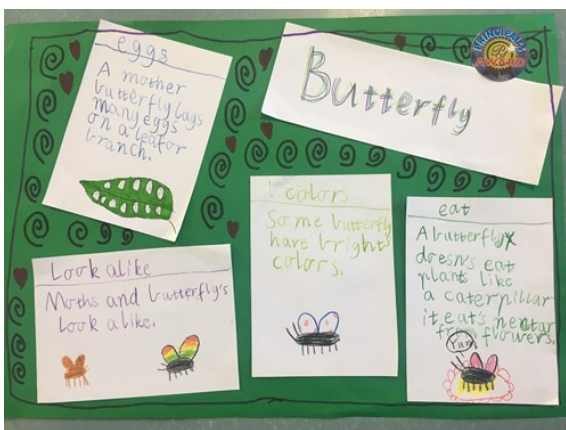 eggs
A mother
butterfly lays
many eggs
on a leaf or
branch.
Butterfly
PRINCIPAL'S
AWARD
colors
Some butterfly
have bright
colors.
eat
A butterfly
doesn't eat
plants like
a caterpillar
it eat's nectar
from flowers.
Yum
Look alike
Moths and butterfly's
Look alike.